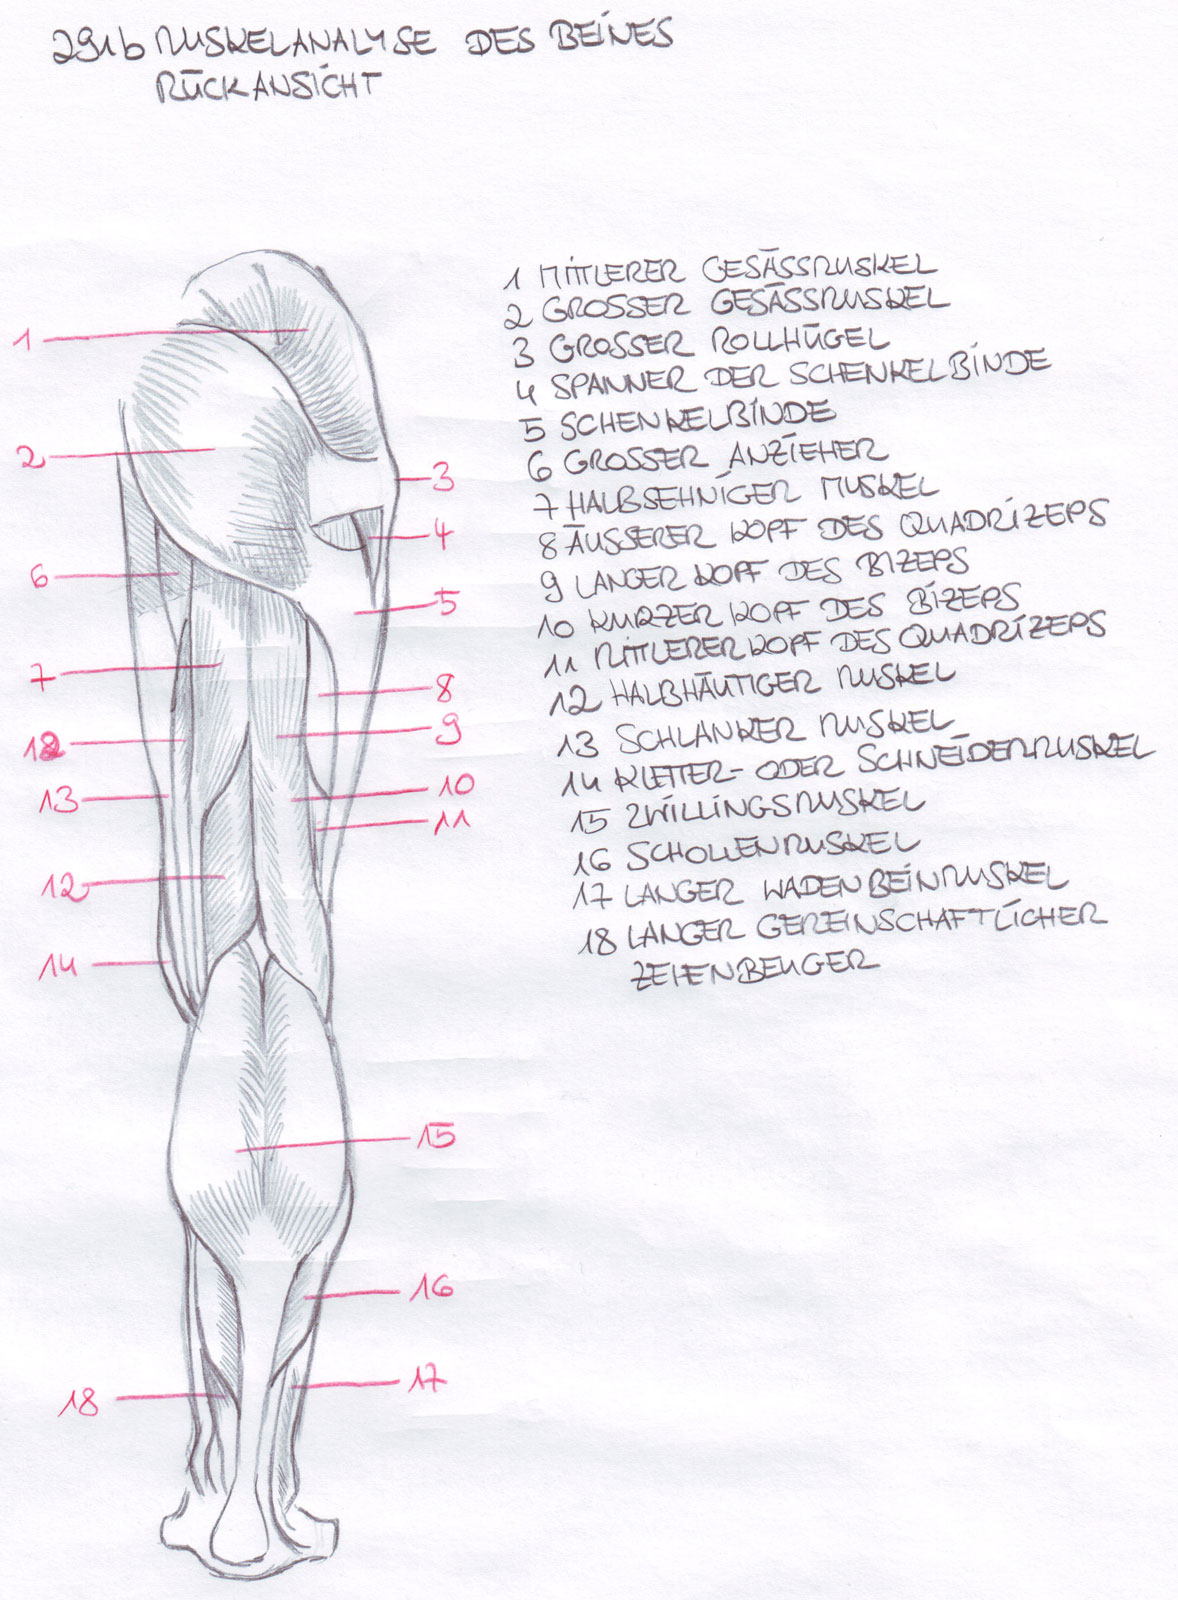 291b MUSKELANALYSE DES BEINES
RÜCKANSICHT
1 MITTLERER GESÄSSMUSKEL
2 GROSSER GESÄSSMUSKEL
3 GROSSER ROLLHÜGEL
4 SPANNER DER SCHENKELBINDE
5 SCHENKELBINDE
6 GROSSER ANZIEHER
7 HALBSEHNIGER MUSKEL
8 ÄUSSERER KOPF DES QUADRIZEPS
9 LANGER KOPF DES BIZEPS
10 KURZER KOPF DES BIZEPS
11 MITTLERER KOPF DES QUADRIZEPS
12 HALBHÄUTIGER MUSKEL
13 SCHLANKER MUSKEL
14 KLETTER- ODER SCHNEIDERMUSKEL
15 ZWILLINGSMUSKEL
16 SCHOLLENMUSKEL
17 LANGER WADENBEINMUSKEL
18 LANGER GEMEINSCHAFTLICHER
ZEHENBEUGER
1
2
3
4
6
5
7
8
9
12
13
10
11
12
14
15
16
17
18